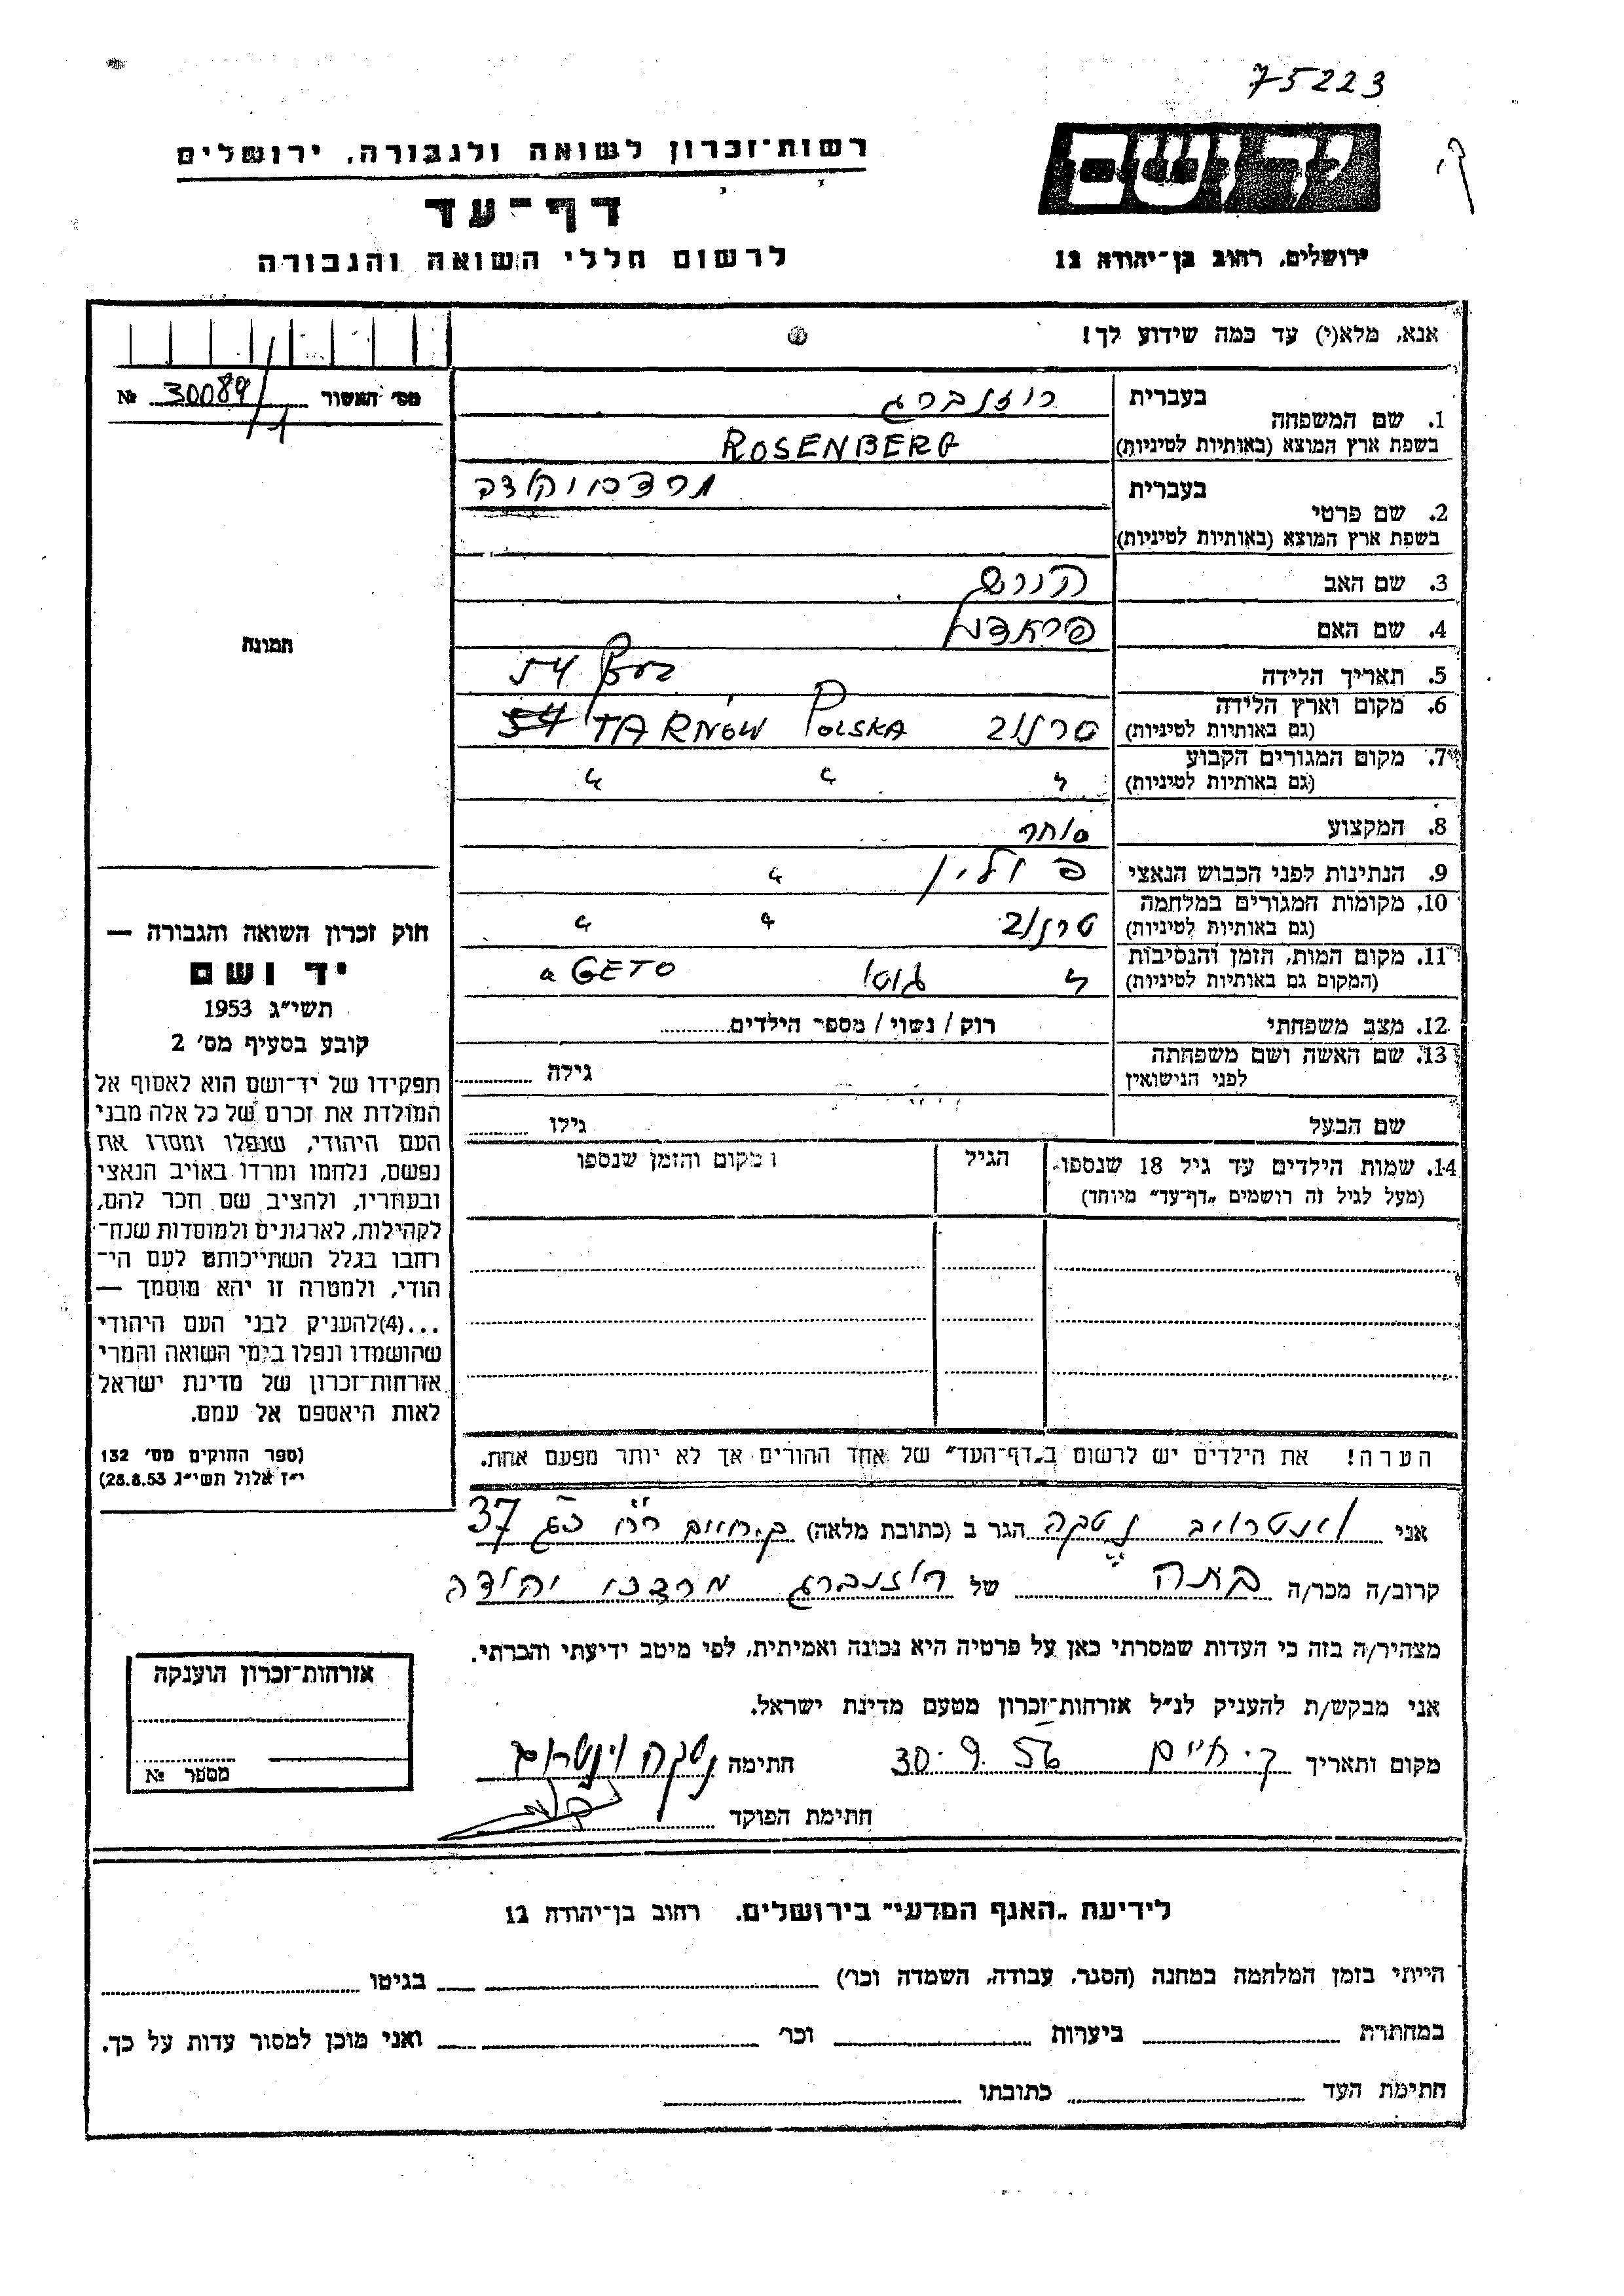 75223
יד ושם
רשות-זכרון לשואה ולגבורה, ירושלים
דף-עד
לרשום חללי השואה והגבורה
ירושלים, רחוב בן-יהודה 12
אנא, מלא(י) עד כמה שידוע לך!
מס' האשור 30084/1 №
1. שם המשפחה
בעברית רוזנברג
בשפת ארץ המוצא (באותיות לטיניות) ROSENBERG
2. שם פרטי
בעברית מרדכי יהודה
בשפת ארץ המוצא (באותיות לטיניות)
3. שם האב הירש
4. שם האם
5. תאריך הלידה 54
6. מקום וארץ הלידה
(גם באותיות לטיניות) טרנוב POLSKA TARNÓW 54
7. מקום המגורים הקבוע
(גם באותיות לטיניות) " " "
8. המקצוע סוחר
9. הנתינות לפני הכבוש הנאצי פולין "
10. מקומות המגורים במלחמה
(גם באותיות לטיניות) טרנוב " "
11. מקום המות, הזמן והנסיבות
(המקום גם באותיות לטיניות) " גטו GETO "
12. מצב משפחתי רוק / נשוי / מספר הילדים
13. שם האשה ושם משפחתה
לפני הנישואין גילה
שם הבעל גילו
14. שמות הילדים עד גיל 18 שנספו
(מעל לגיל זה רושמים "דף-עד" מיוחד)
הגיל
המקום והזמן שנספו
הערה! את הילדים יש לרשום ב"דף-העד" של אחד ההורים אך לא יותר מפעם אחת.
תמונה
חוק זכרון השואה והגבורה —
יד ושם
תשי"ג 1953
קובע בסעיף מס' 2
תפקידו של יד-ושם הוא לאסוף אל
המולדת את זכרם של כל אלה מבני
העם היהודי, שנפלו ומסרו את
נפשם, נלחמו ומרדו באויב הנאצי
ובעוזריו, ולהציב שם וזכר להם,
לקהילות, לארגונים ולמוסדות שנח-
רחבו בגלל השתייכותם לעם הי-
הודי, ולמטרה זו יהא מוסמך —
...(4)להעניק לבני העם היהודי
שהושמדו ונפלו בימי השואה והמרי
אזרחות-זכרון של מדינת ישראל
לאות היאספם אל עמם.
(ספר החוקים מס' 132
י"ז אלול תשי"ג 28.8.53)
אני וינטרויב נטקה הגר ב (כתובת מלאה) ק. חיים 37
קרוב/ה מכר/ה של רוזנברג מרדכי יהודה
מצהיר/ה בזה כי העדות שמסרתי כאן על פרטיה היא נכונה ואמיתית, לפי מיטב ידיעתי והכרתי.
אני מבקש/ת להעניק לנ"ל אזרחות-זכרון מטעם מדינת ישראל.
מקום ותאריך ק. חיים 30.9.56 חתימה נטקה וינטרויב
חתימת הפוקד
אזרחות-זכרון הוענקה
מספר №
לידיעת "האגף המדעי" בירושלים, רחוב בן-יהודה 12
הייתי בזמן המלחמה במחנה (הסגר, עבודה, השמדה וכו') בגיטו
במחתרת ביערות וכו' ואני מוכן למסור עדות על כך.
חתימת העד כתובתו